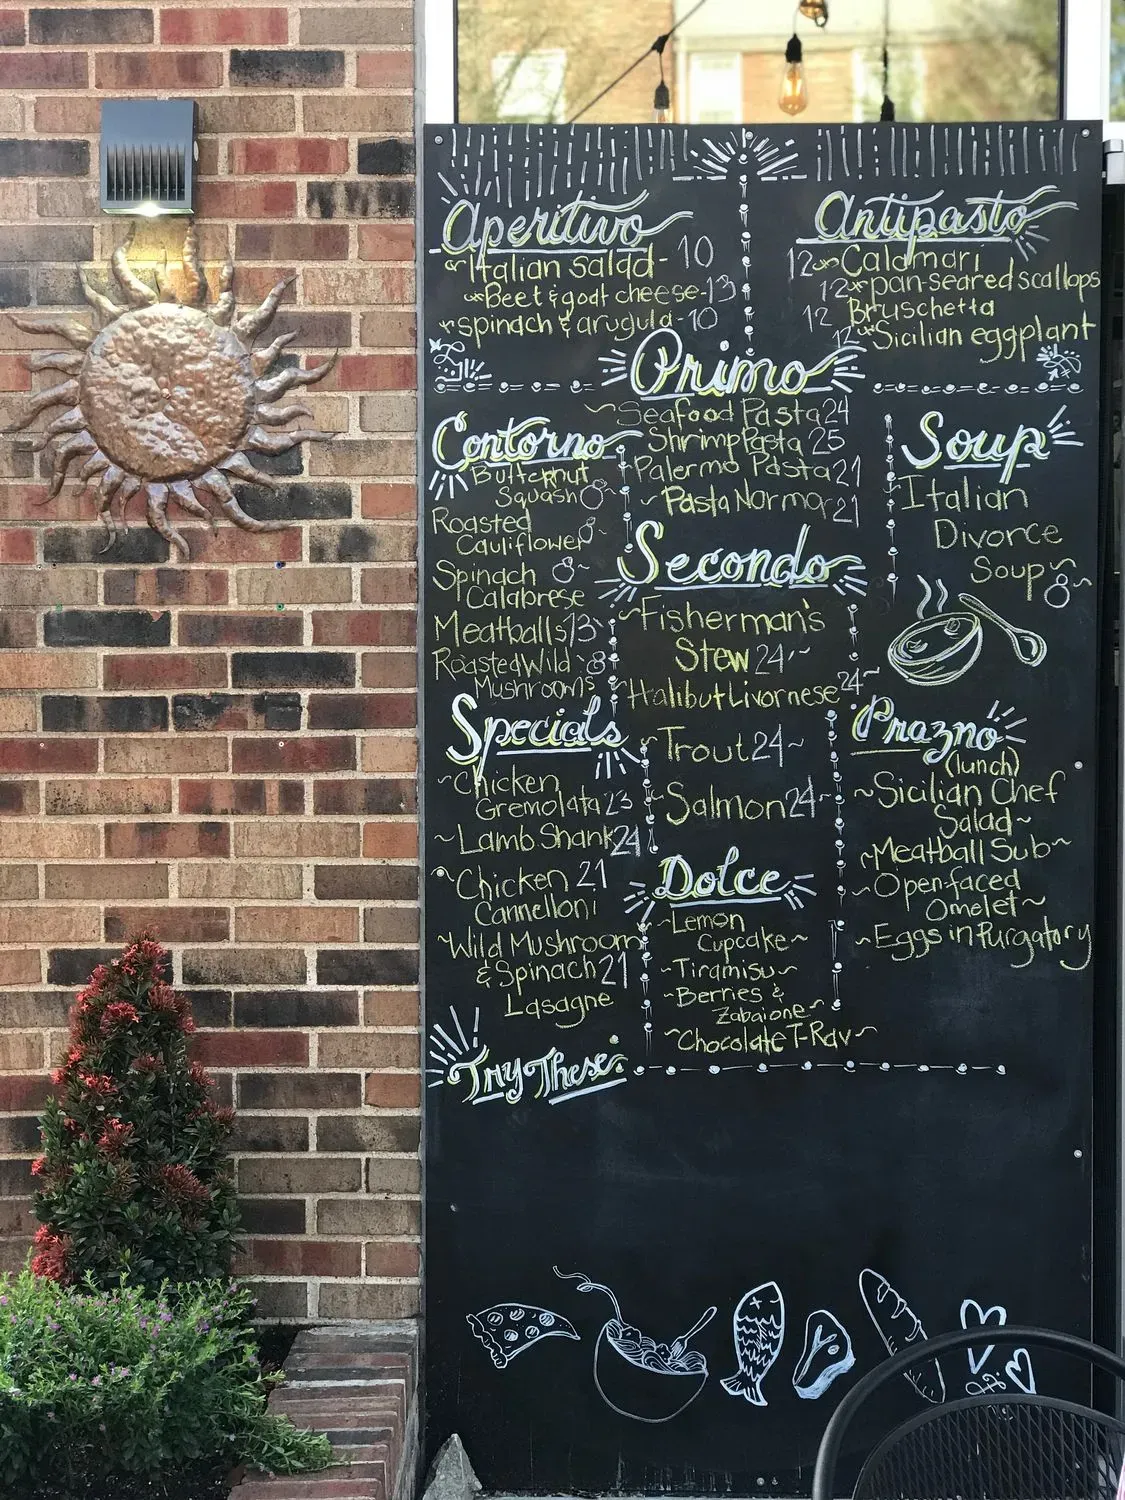 Aperitivo
Italian salad - 10
Beet & goat cheese - 13
spinach & arugula - 10
Antipasto
12 Calamari
12 pan-seared scallops
12 Bruschetta
12 Sicilian eggplant
Primo
Seafood Pasta 24
Shrimp Pasta 25
Palermo Pasta 21
Pasta Norma 21
Contorno
Butternut
Squash 8
Roasted
Cauliflower 8
Spinach 8
Calabrese
Meatballs 13
Roasted Wild 8
Mushrooms
Soup
Italian
Divorce
Soup
8
Secondo
Fisherman's
Stew 24
Halibut Livornese 24
Trout 24
Salmon 24
Specials
Chicken
Gremolata 23
Lamb Shank 24
Chicken 21
Cannelloni
Wild Mushroom
& Spinach 21
Lasagne
Prazno
(lunch)
Sicilian Chef
Salad
Meatball Sub
Open-faced
Omelet
Eggs in Purgatory
Dolce
Lemon
Cupcake
Tiramisu
Berries &
Zabaione
Chocolate T-Rav
Try These: